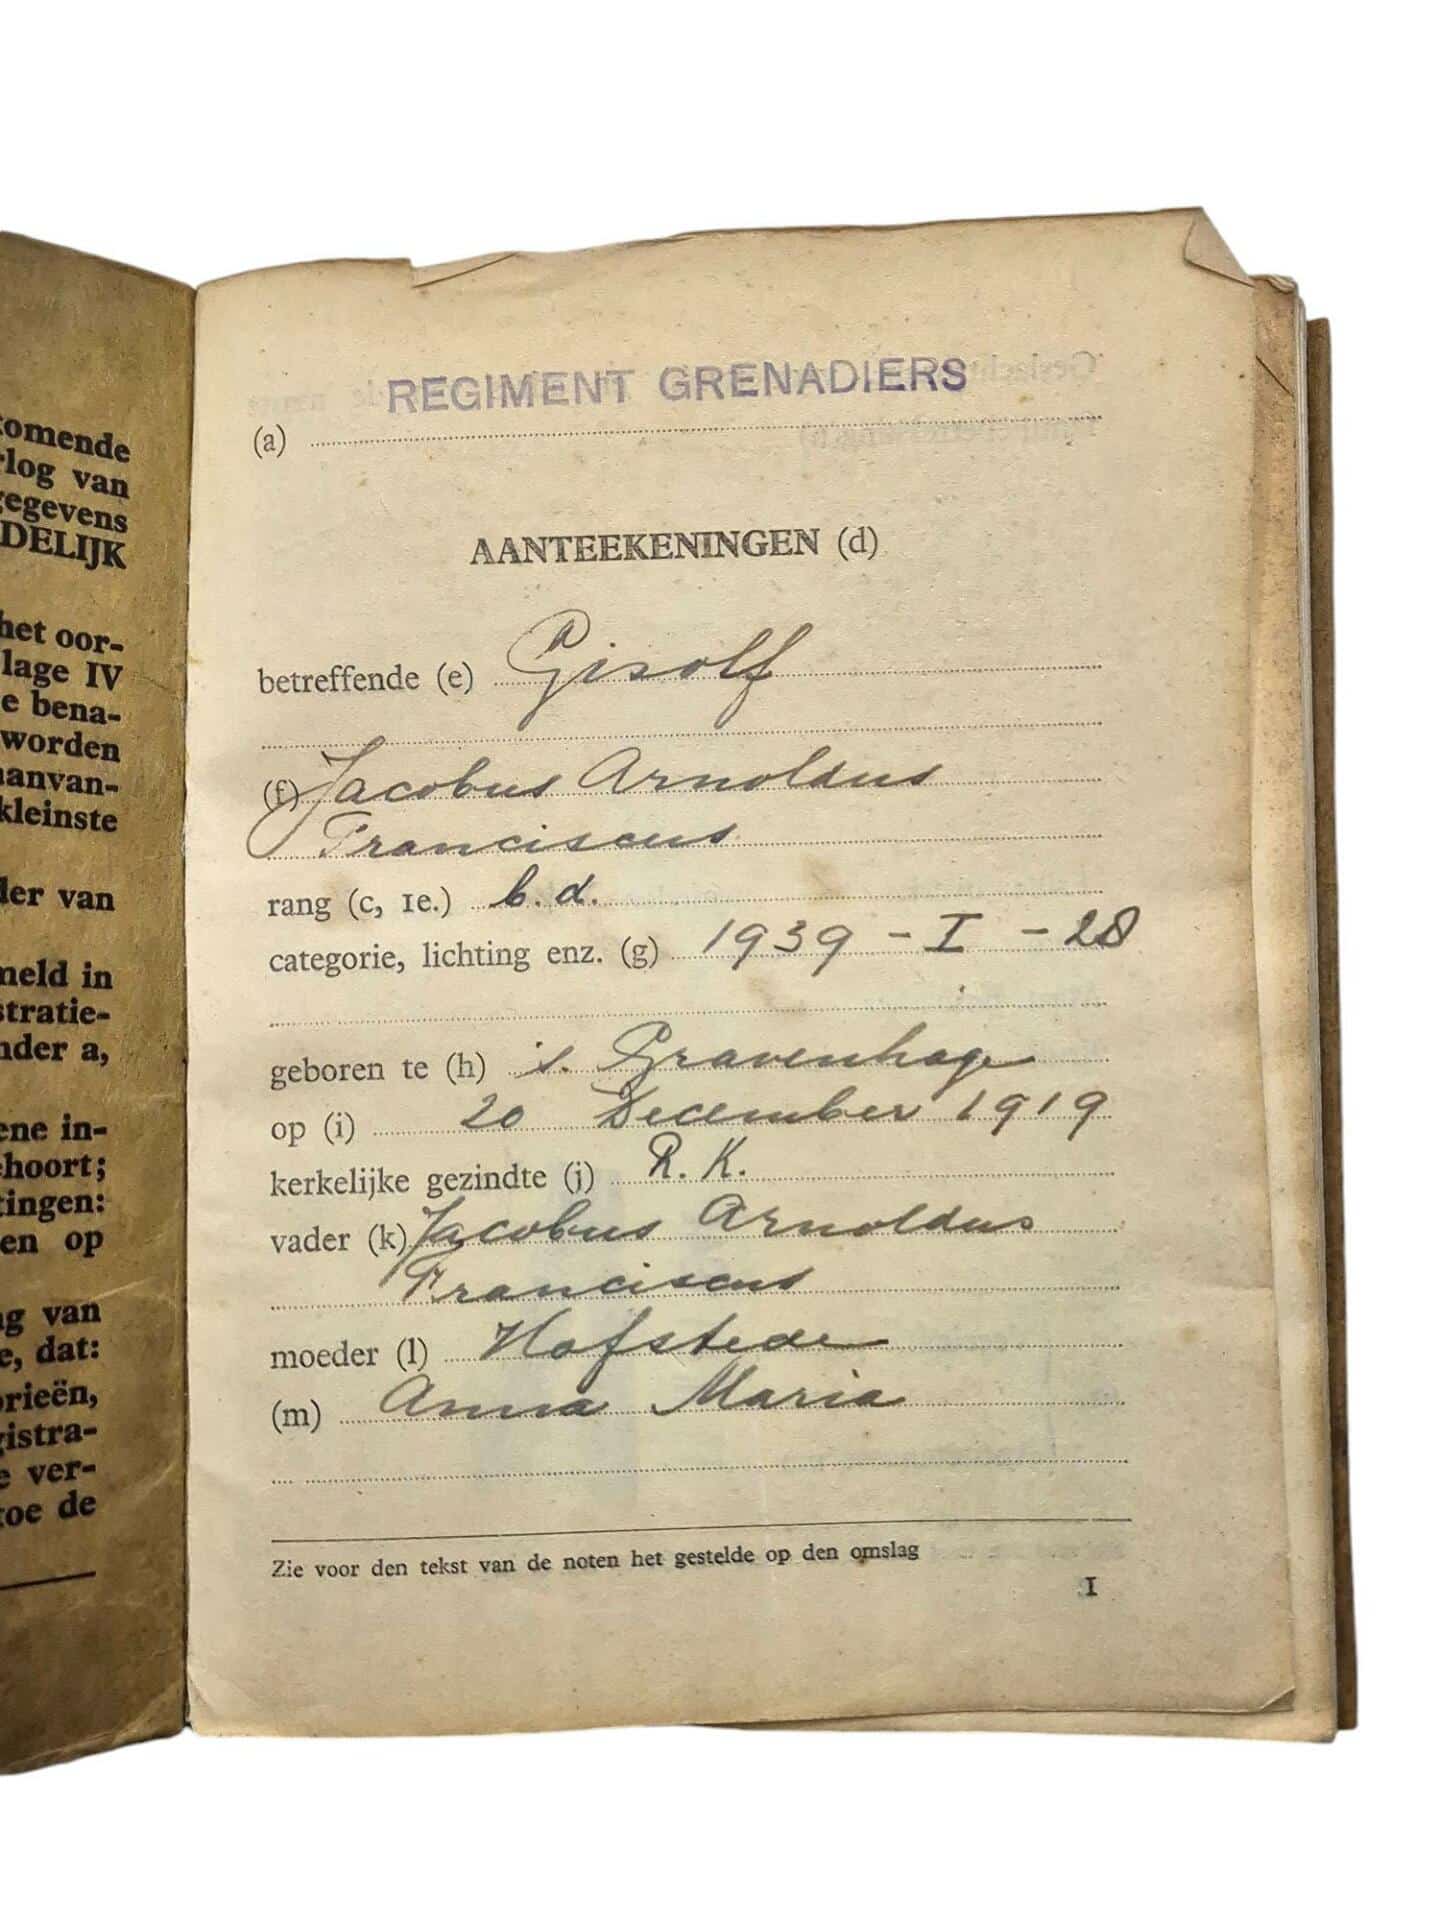 komende
rlog van
gegevens
DELIJK
het oor-
lage IV
e bena-
worden
aanvan-
kleinste
der van
meld in
stratie-
nder a,
ene in-
hoort;
tingen:
en op
ng van
e, dat:
orieën,
gistra-
e ver-
toe de
REGIMENT GRENADIERS
(a)
AANTEEKENINGEN (d)
betreffende (e) Gisolf
(f) Jacobus Arnoldus
Franciscus
rang (c, 1e.) b.d.
categorie, lichting enz. (g) 1939 - I - 28
geboren te (h) 's. Gravenhage
op (i) 20 December 1919
kerkelijke gezindte (j) R.K.
vader (k) Jacobus Arnoldus
Franciscus
moeder (l) Hofstede
(m) Anna Maria
Zie voor den tekst van de noten het gestelde op den omslag
1